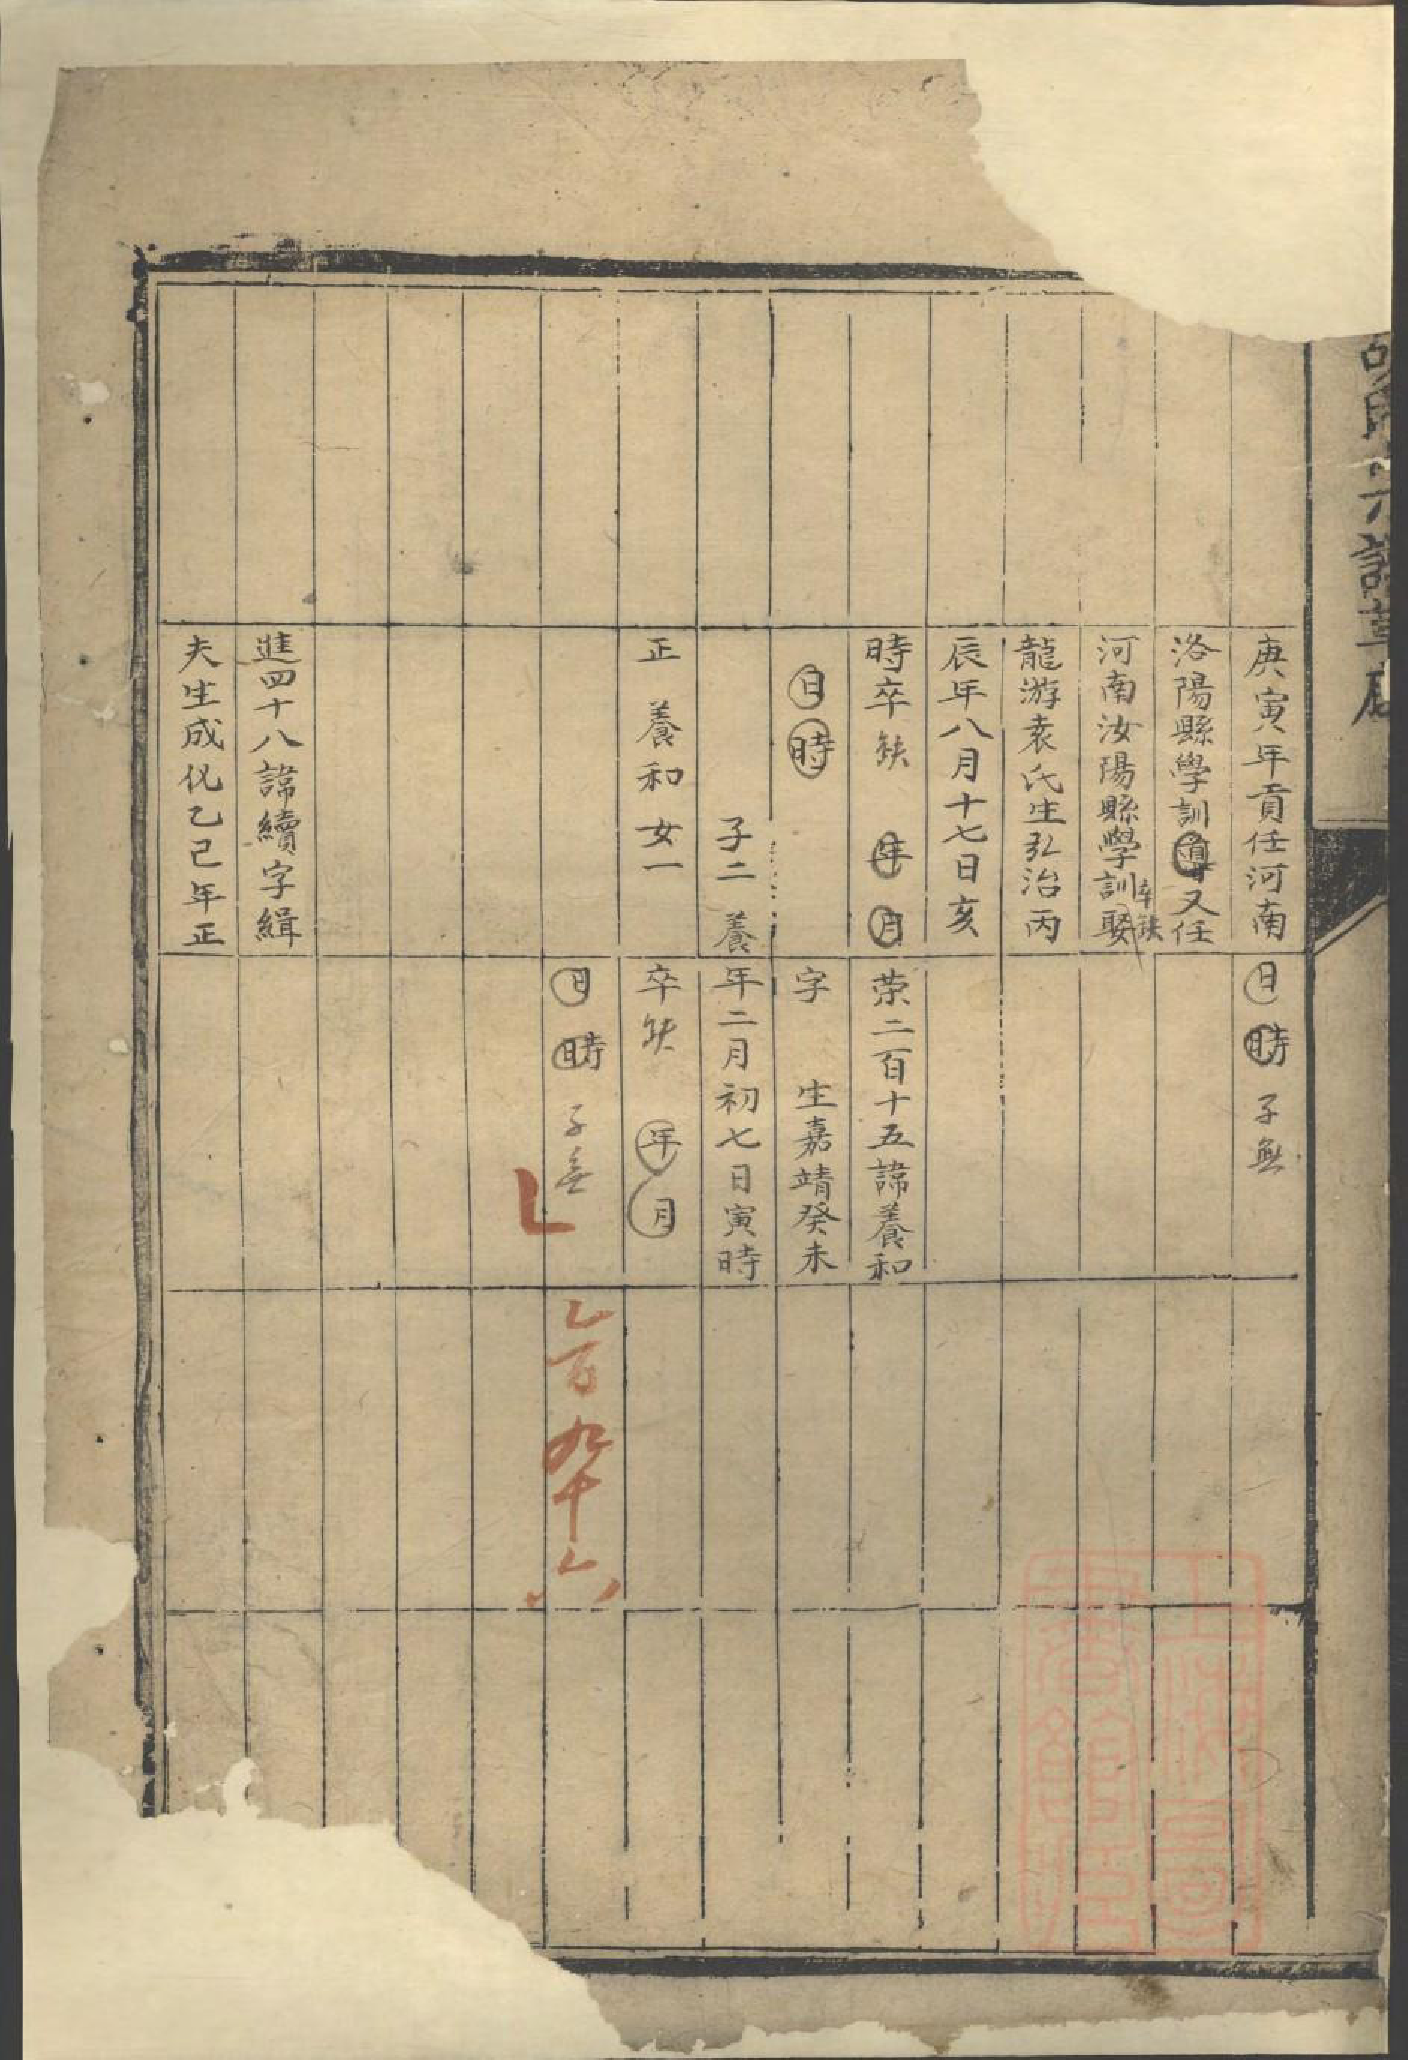 庚寅年貢任河南
洛陽縣學訓導又任
河南汝陽縣學訓娶
卒缺
龍游袁氏生弘治丙
辰年八月十七日亥
時卒缺 年月
日時
子二 養
正 養和 女一
進四十八諱續字緝
夫生成化乙巳年正
日時 子無
荣二百十五諱養和
字 生嘉靖癸未
年二月初七日寅時
卒缺 年月
日時 子無
百九十六
上海圖書館藏